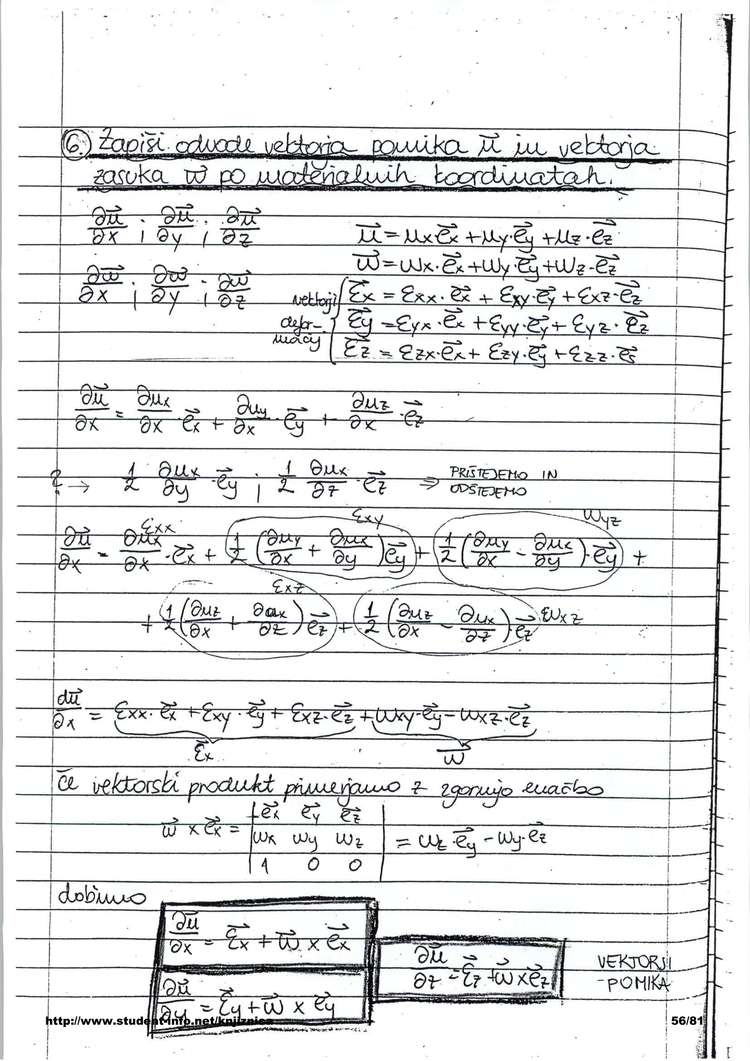 6. Zapiši odvode vektorja pomika u⃗ in vektorja
zasuka w⃗ po materialnih koordinatah.
∂u⃗/∂x ; ∂u⃗/∂y ; ∂u⃗/∂z
u⃗ = ux·e⃗x + uy·e⃗y + uz·e⃗z
w⃗ = wx·e⃗x + wy·e⃗y + wz·e⃗z
∂w⃗/∂x ; ∂w⃗/∂y ; ∂w⃗/∂z
vektorji deformacij
ε⃗x = εxx·e⃗x + εxy·e⃗y + εxz·e⃗z
ε⃗y = εyx·e⃗x + εyy·e⃗y + εyz·e⃗z
ε⃗z = εzx·e⃗x + εzy·e⃗y + εzz·e⃗z
∂u⃗/∂x = ∂ux/∂x·e⃗x + ∂uy/∂x·e⃗y + ∂uz/∂x·e⃗z
→ 1/2 ∂ux/∂y·e⃗y ; 1/2 ∂ux/∂z·e⃗z ⇒ PRIŠTEJEMO IN ODŠTEJEMO
εxx εxy wyz
∂u⃗/∂x = ∂ux/∂x·e⃗x + 1/2(∂uy/∂x + ∂ux/∂y)e⃗y + 1/2(∂uy/∂x - ∂ux/∂y)·e⃗y +
εxz
+ 1/2(∂uz/∂x + ∂ux/∂z)e⃗z + 1/2(∂uz/∂x - ∂ux/∂z)e⃗z wxz
du⃗/∂x = εxx·e⃗x + εxy·e⃗y + εxz·e⃗z + wxy·e⃗y - wxz·e⃗z
ε⃗x w⃗
če vektorski produkt primerjamo z zgornjo enačbo
w⃗ × e⃗x = | e⃗x e⃗y e⃗z |
| wx wy wz | = wz·e⃗y - wy·e⃗z
| 1 0 0 |
dobimo
∂u⃗/∂x = ε⃗x + w⃗ × e⃗x
∂u⃗/∂z = ε⃗z + w⃗ × e⃗z
VEKTORJI POMIKA
∂u⃗/∂y = ε⃗y + w⃗ × e⃗y
http://www.student-info.net/knjiznica
56/81